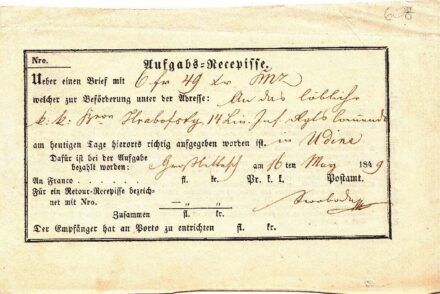 68
Nro.
Aufgabs-Recepisse.
Ueber einen Brief mit 6 fr 49 xr Mz
welcher zur Beförderung unter der Adresse: An das löbliche
k: k: Hrabofsky 14 Lin. Inf. Rgts Comando
am heutigen Tage hierorts richtig aufgegeben worden ist. in Udine
Dafür ist bei der Aufgabe
bezahlt worden: am 16 ten May 1849
An Franco . . . . . fl. kr. Pr. k. k. Postamt.
Für ein Retour-Recepisse bezeich-
net mit Nro. — „ — „
Zusammen fl. kr.
Der Empfänger hat an Porto zu entrichten fl. kr.